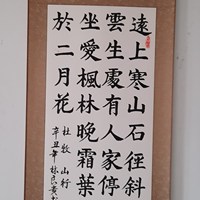 遠上寒山石徑斜
雲生處有人家停
坐愛楓林晚霜葉
於二月花
杜牧 山行
辛丑年 林